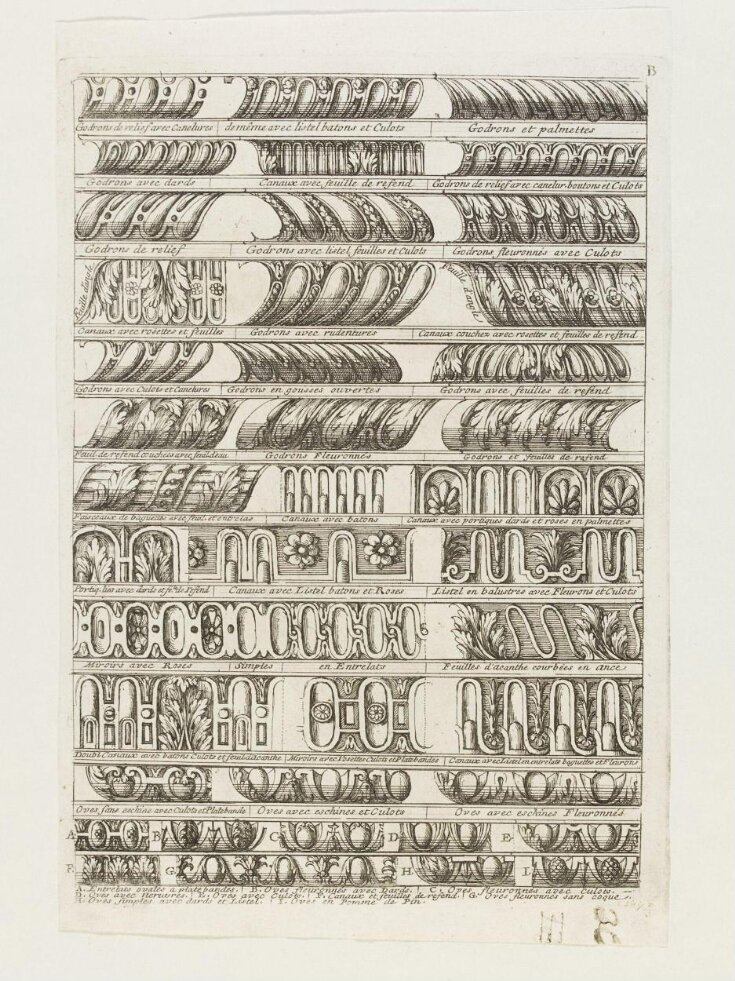 B
Godrons de relief avec Canelures de même avec listel batons et Culots Godrons et palmettes
Godrons avec dards Canaux avec feuille de refend Godrons de relief avec canelur. boutons et Culots
Godrons de relief Godrons avec listel feuilles et Culots Godrons fleuronnés avec Culots
Canaux avec rosettes et feuilles Godrons avec rudentures Canaux couchez avec rosettes et feuilles de refend
Godrons avec Culots et Canelures Godrons en gousses ouvertes Godrons avec feuilles de refend
Feuil. de refend couchées avec Godrons Fleuronnés Godrons et feuilles de refend
Faisceaux de baguettes avec Canaux avec batons Canaux avec portiques dards et roses en palmettes
avec dards et Canaux avec Listel batons et Roses Listel en balustres avec Fleurons et Culots
Miroirs avec Roses Simples en Entrelats Feuilles d'acanthe courbées en ance
Doubl. Canaux avec batons Culots et feuil. d'acanthe Miroirs avec Rosettes Culots et Platebandes Canaux avec Listel en entrelats baguettes et Fleurons
Oves sans eschine avec Culots et Platebande Oves avec eschines et Culots Oves avec eschines Fleuronnés
A B C D E
F G H I
A. Entrelais ovales a platebandes. B. Oves fleuronnés avec Dards. C. Oves fleuronnés avec Culots.
D. Oves avec nervures. E. Oves avec Culots. F. Canaux et feuilles de refend. G. Oves fleuronnés sans coque.
H. Oves simples avec dards et Listel. I. Oves en Pomme de Pin.